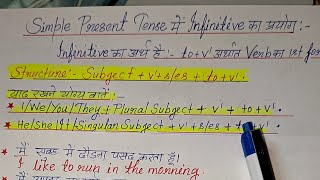 Simple Present Tense में Infinitive का प्रयोग :-
Infinitive का अर्थ है :- to + v¹ अर्थात Verb का 1st for
Structure :- Subject + v¹ + s/es + to + v¹ .
याद रखने योग्य बातें
* I/We/You/They + Plural Subject + v¹ + to + v¹ .
* He/She/It/Singular Subject + v¹ + s/es + to + v¹ .
* मैं सुबह में दौड़ना पसंद करता हूँ।
I like to run in the morning.